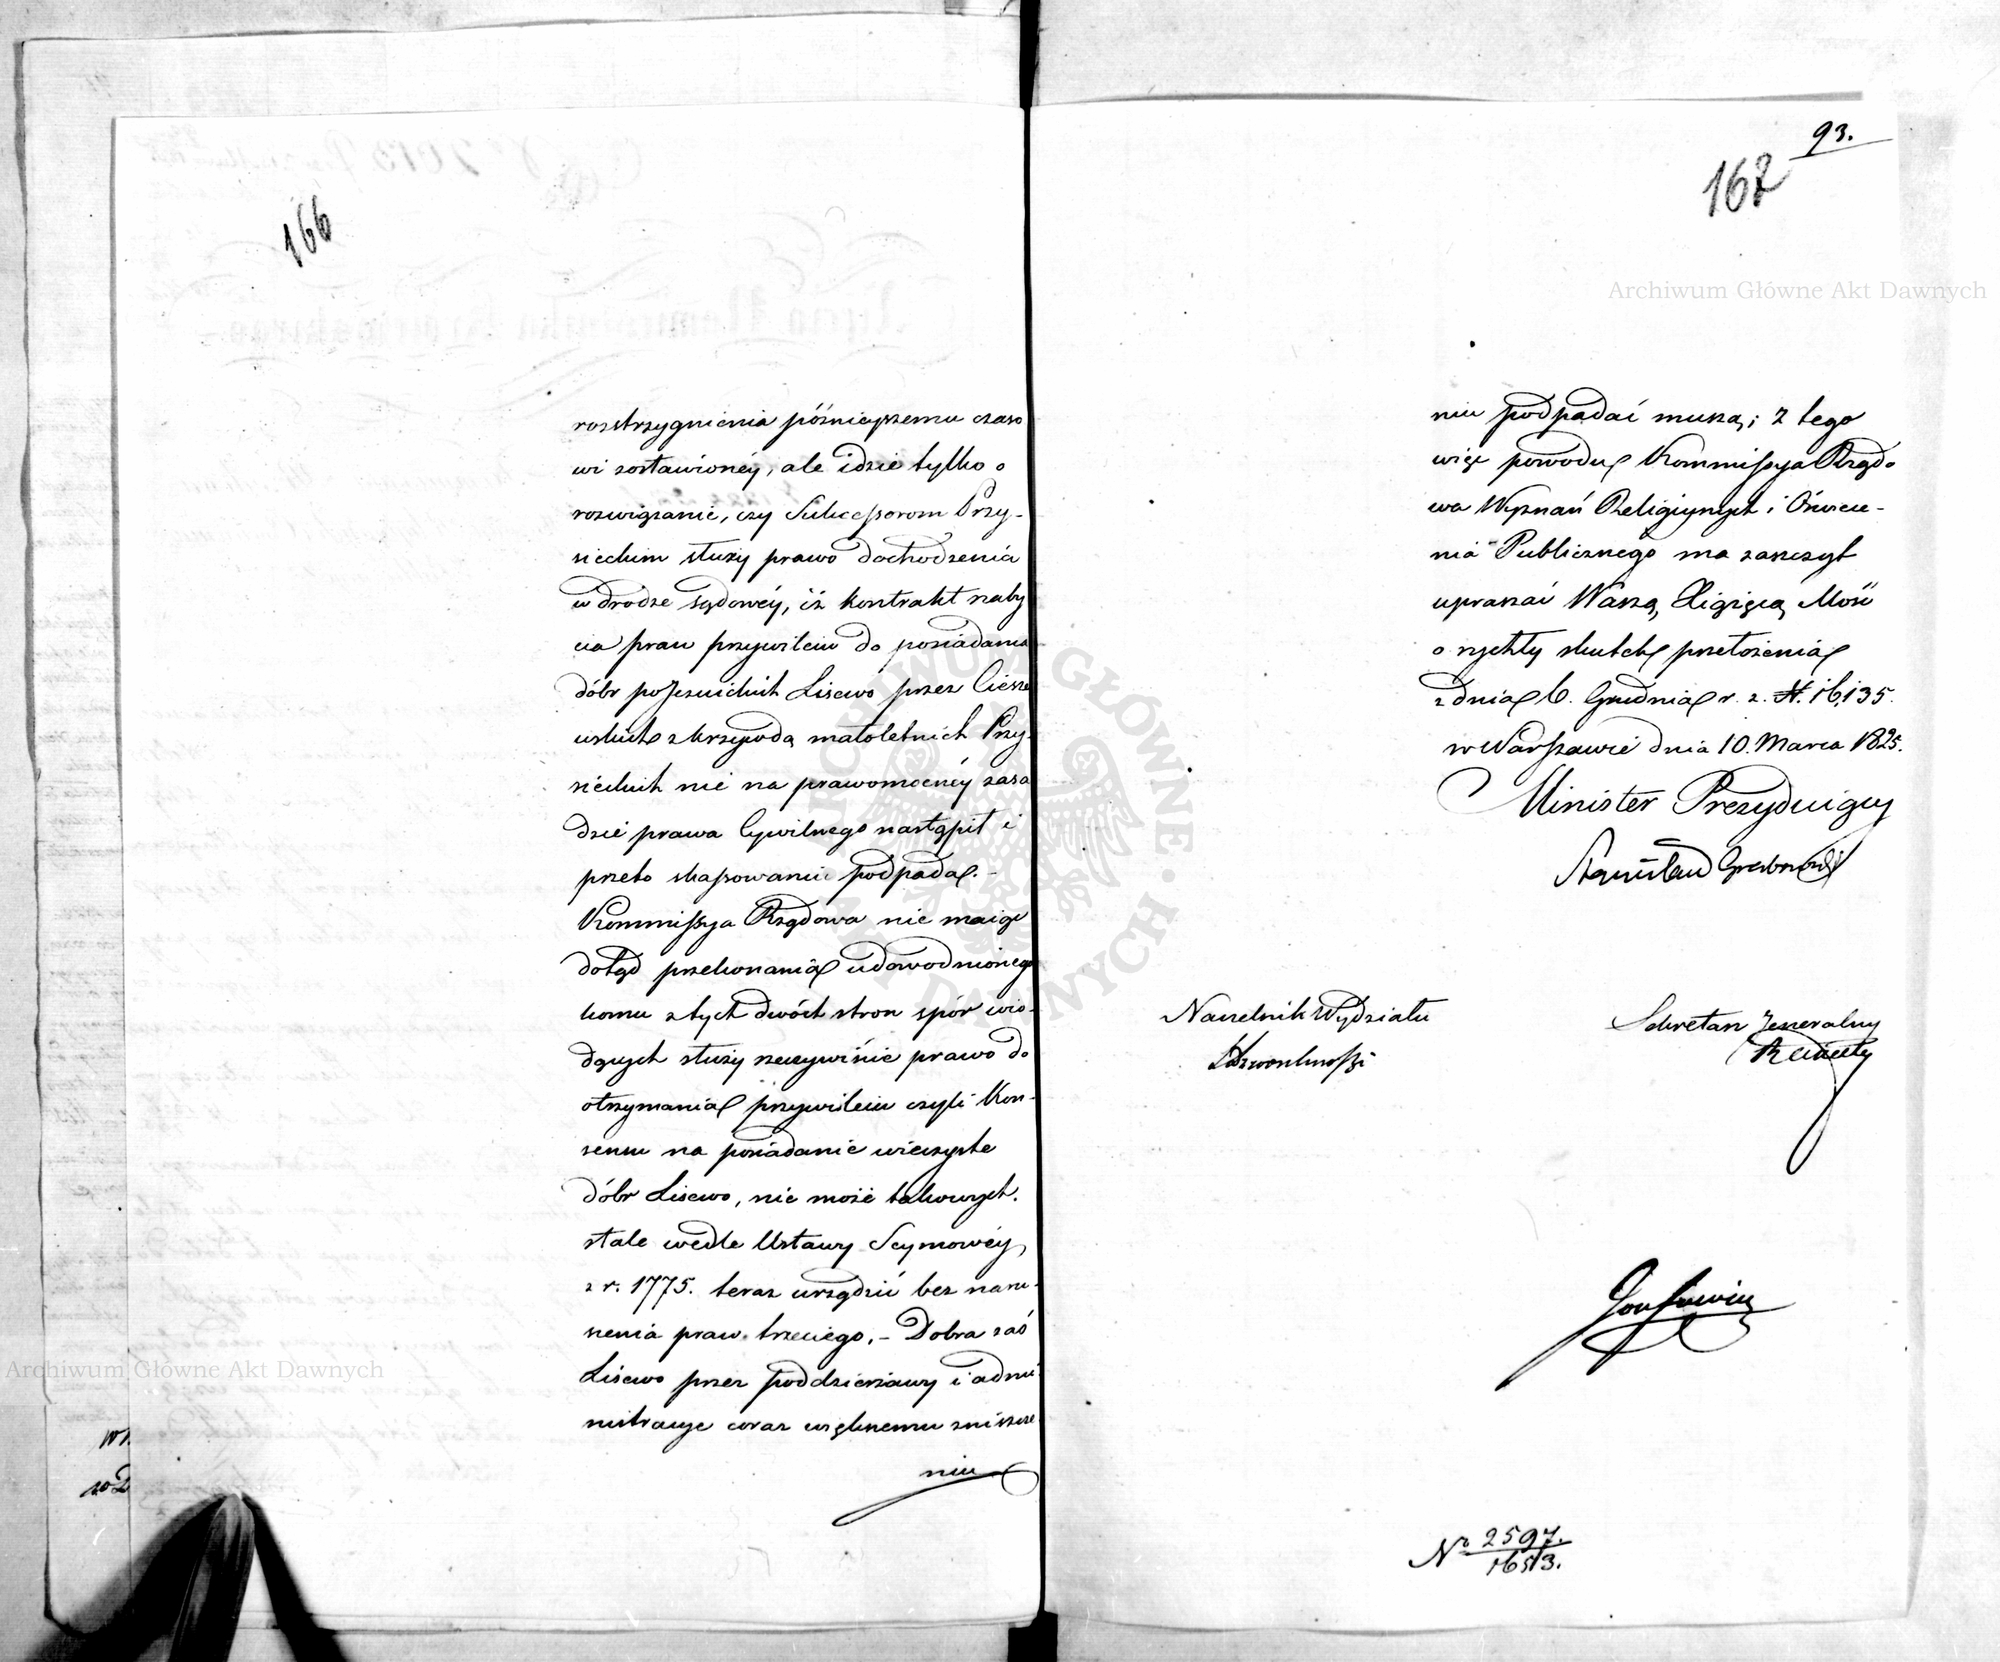 166
rozstrzygnienia pózniejszemu czaso
wi zostawionéy, ale idzie tylko o
rozwiązanie, czy Sukcessorom Przy-
sieckim służy prawo dochodzenia
w drodze sądowéy, iż kontrakt naby
cia praw przywileiu do posiadania
dóbr pojezuickich Lisewo przez Ciesze
wskich z krzywdą małoletnich Przy-
siéckich nie na prawomocnéy zasa
dzie prawa Cywilnego nastąpił i
przeto skassowaniu podpada.-
Kommissya Rządowa nie maiąc
dotąd przekonania udowodnionego
komu z tych dwóch stron spór wio-
dących służy rzeczywiście prawo do
otrzymania przywileiu czyli Kon-
sensu na posiadanie wieczyste
dóbr Lisewo, nie może takowych
stale wedle Ustawy Seymowéy
z r. 1775. teraz urządzić bez naru-
szenia praw trzeciego. - Dobra zaś
Lisewo przez poddzierżawy i admi
nistracye coraz większemu zniszcze
niu
93.
167
niu podpadać muszą; z tego
więc powodu Kommissya Rządo
wa Wyznań Religiynych i Oświece-
nia Publicznego ma zaszczyt
upraszać Waszą Xiążęcą Mość
o rychły skutek przełożenia
z dnia 6. Grudnia r. z. N. 16,135.
w Warszawie dnia 10. Marca 1825.
Minister Prezyduiący
Stanisław Grabowski
Naczelnik Wydziału
Sekretarz Jeneralny
No 2597.
16513.
Archiwum Główne Akt Dawnych
Archiwum Główne Akt Dawnych
ARCHIWUM GŁÓWNE AKT DAWNYCH